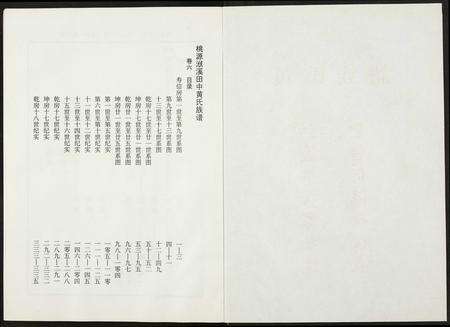 桃源漵溪田中黄氏族谱
卷六 目录
寿信房第一世至第九世系图 一—三
第九世至十三世系图 四—十一
十三世至十七世系图 十二—四九
乾房十七世至廿一世系图 五十—五二
坤房十七世至廿一世系图 五三—九五
乾房廿一世至廿五世系图 九六—九七
坤房廿一世至廿五世系图 九八—一〇四
第一世至第五世纪实 一〇五—一一〇
第六世至第十世纪实 一一一—一二五
十一世至十二世纪实 一二六—一四五
十三世至十四世纪实 一四六—二〇四
十五世至十六世纪实 二〇五—二八八
乾房十七世纪实 二八九—二九一
坤房十七世纪实 二九二—三三二
乾房十八世纪实 三三三—三三五